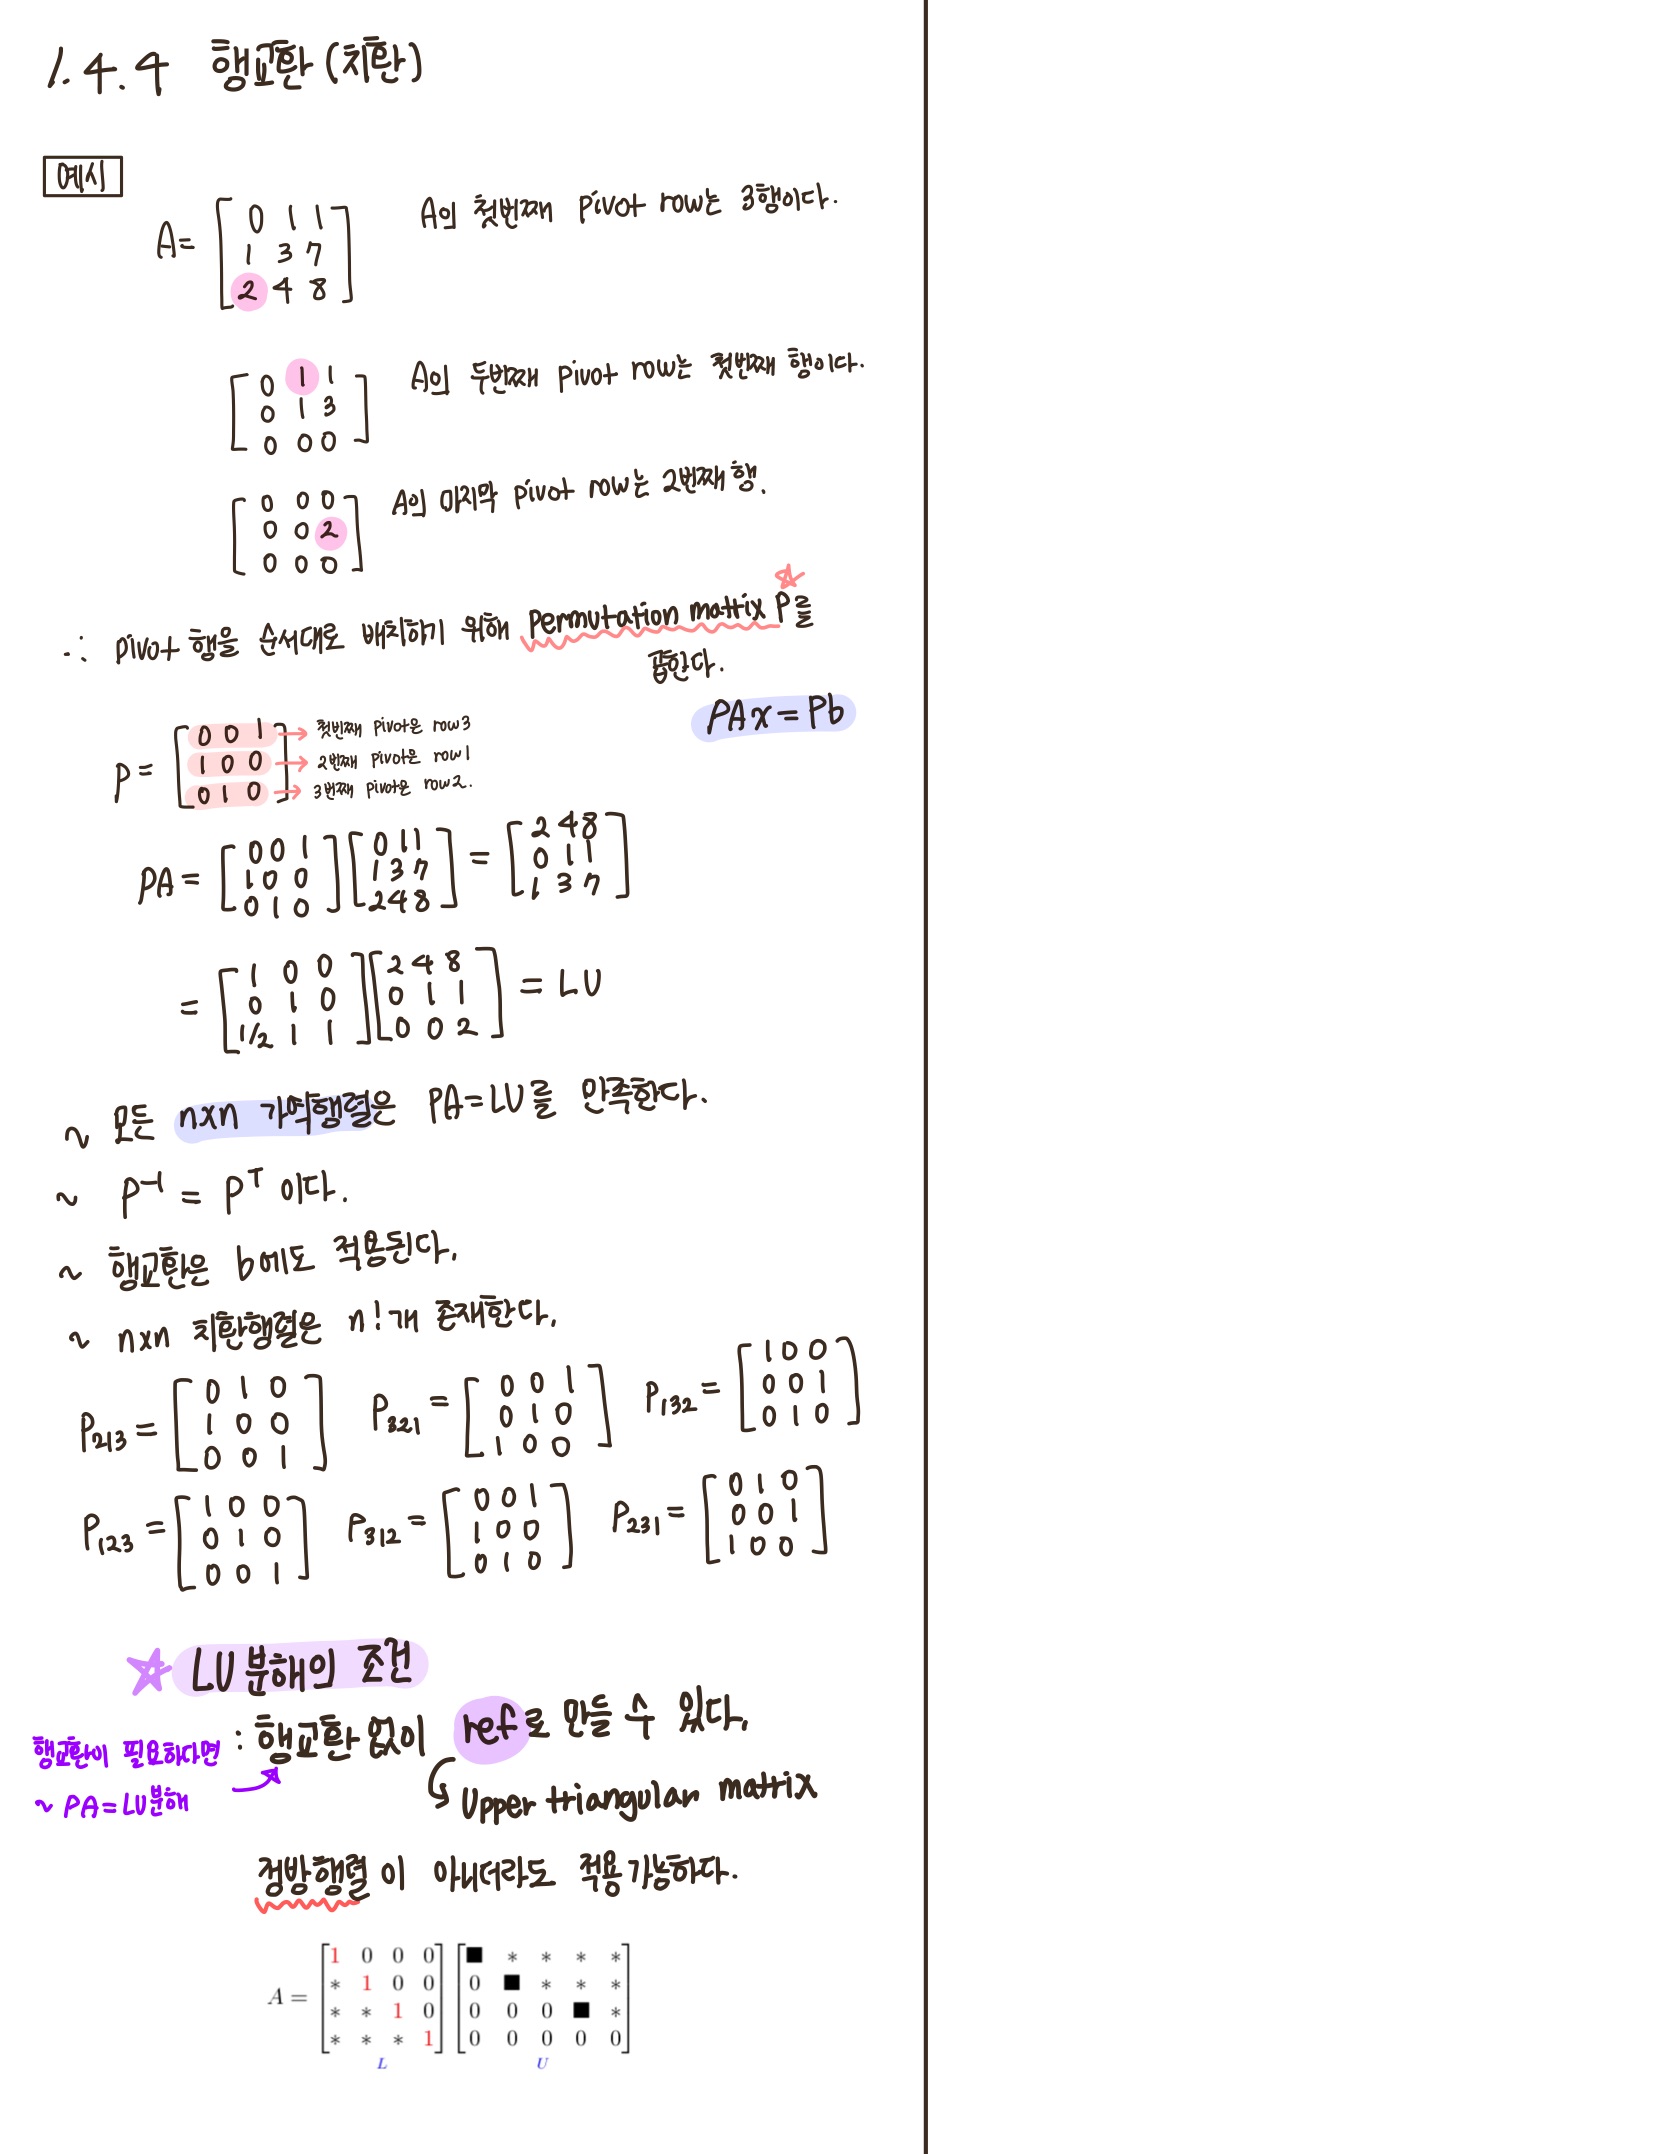 1.4.4 행교환(치환)
예시
A= [0 1 1
1 3 7
2 4 8] A의 첫번째 pivot row는 3행이다.
[0 1 1
0 1 3
0 0 0] A의 두번째 pivot row는 첫번째 행이다.
[0 0 0
0 0 2
0 0 0] A의 마지막 pivot row는 2번째 행.
∴ pivot 행을 순서대로 배치하기 위해 permutation matrix P를
곱한다.
PAx=Pb
P= [0 0 1 → 첫번째 pivot은 row3
1 0 0 → 2번째 pivot은 row1
0 1 0] → 3번째 pivot은 row2.
PA= [0 0 1
1 0 0
0 1 0] [0 1 1
1 3 7
2 4 8] = [2 4 8
0 1 1
1 3 7]
= [1 0 0
0 1 0
1/2 1 1] [2 4 8
0 1 1
0 0 2] = LU
~ 모든 nxn 가역행렬은 PA=LU를 만족한다.
~ P⁻¹ = Pᵀ 이다.
~ 행교환은 b에도 적용된다.
~ nxn 치환행렬은 n!개 존재한다.
P₂₁₃= [0 1 0
1 0 0
0 0 1]
P₃₂₁= [0 0 1
0 1 0
1 0 0]
P₁₃₂= [1 0 0
0 0 1
0 1 0]
P₁₂₃= [1 0 0
0 1 0
0 0 1]
P₃₁₂= [0 0 1
1 0 0
0 1 0]
P₂₃₁= [0 1 0
0 0 1
1 0 0]
☆ LU분해의 조건
: 행교환 없이 ref로 만들 수 있다.
행교환이 필요하다면
~ PA=LU분해
↳ Upper triangular matrix
정방행렬이 아니더라도 적용가능하다.
A = [1 0 0 0
* 1 0 0
* * 1 0
* * * 1] [■ * * * *
0 ■ * * *
0 0 0 ■ *
0 0 0 0 0]
L U